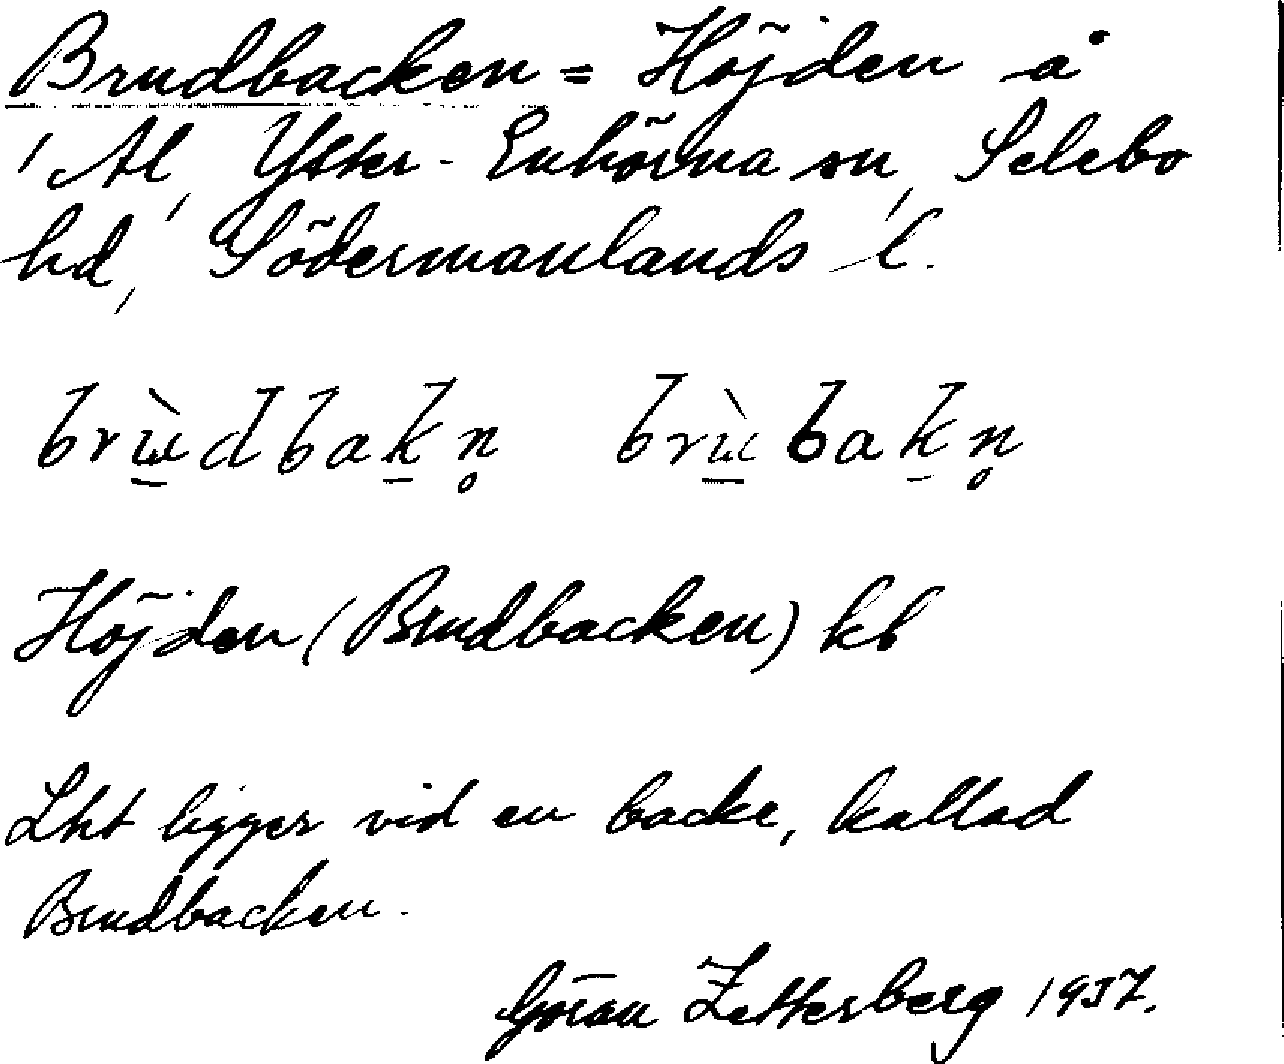 Brudbacken = Höjden å
1 Al, Ytter-Enhörna sn, Selebo
hd, Södermanlands l.
brɯ̱̀dbaḵn̥ brɯ̱̀baḵn̥
Höjden (Brudbacken) kb
Lht ligger vid en backe, kallad
Brudbacken.
Göran Zetterberg 1937.